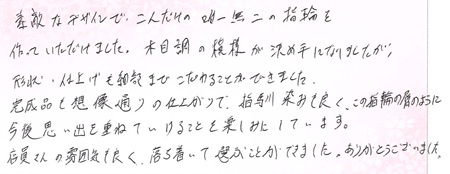 素敵なデザインで、こんだけの唯一無二の指輪を
作っていただけました。木目調の模様が決め手になりましたが、
形状・仕上げも細部までこだわることができました。
完成品も想像通りの仕上がりで、指馴染みも良く、この指輪の層のように
今後思い出を重ねていけることを楽しみにしています。
店員さんの雰囲気も良く、落ち着いて選ぶことができました。ありがとうございました。